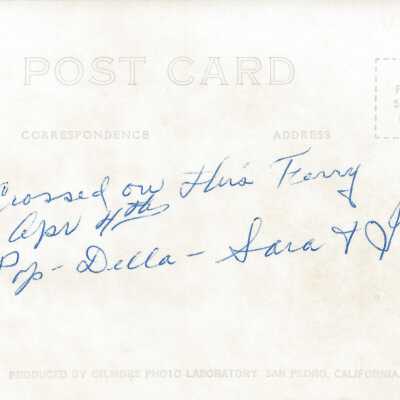 POST CARD
CORRESPONDENCE ADDRESS
Crossed on This Ferry
Apr 4th
Pop - Della - Sara &
PRODUCED BY GILMORE PHOTO LABORATORY SAN PEDRO, CALIFORNIA